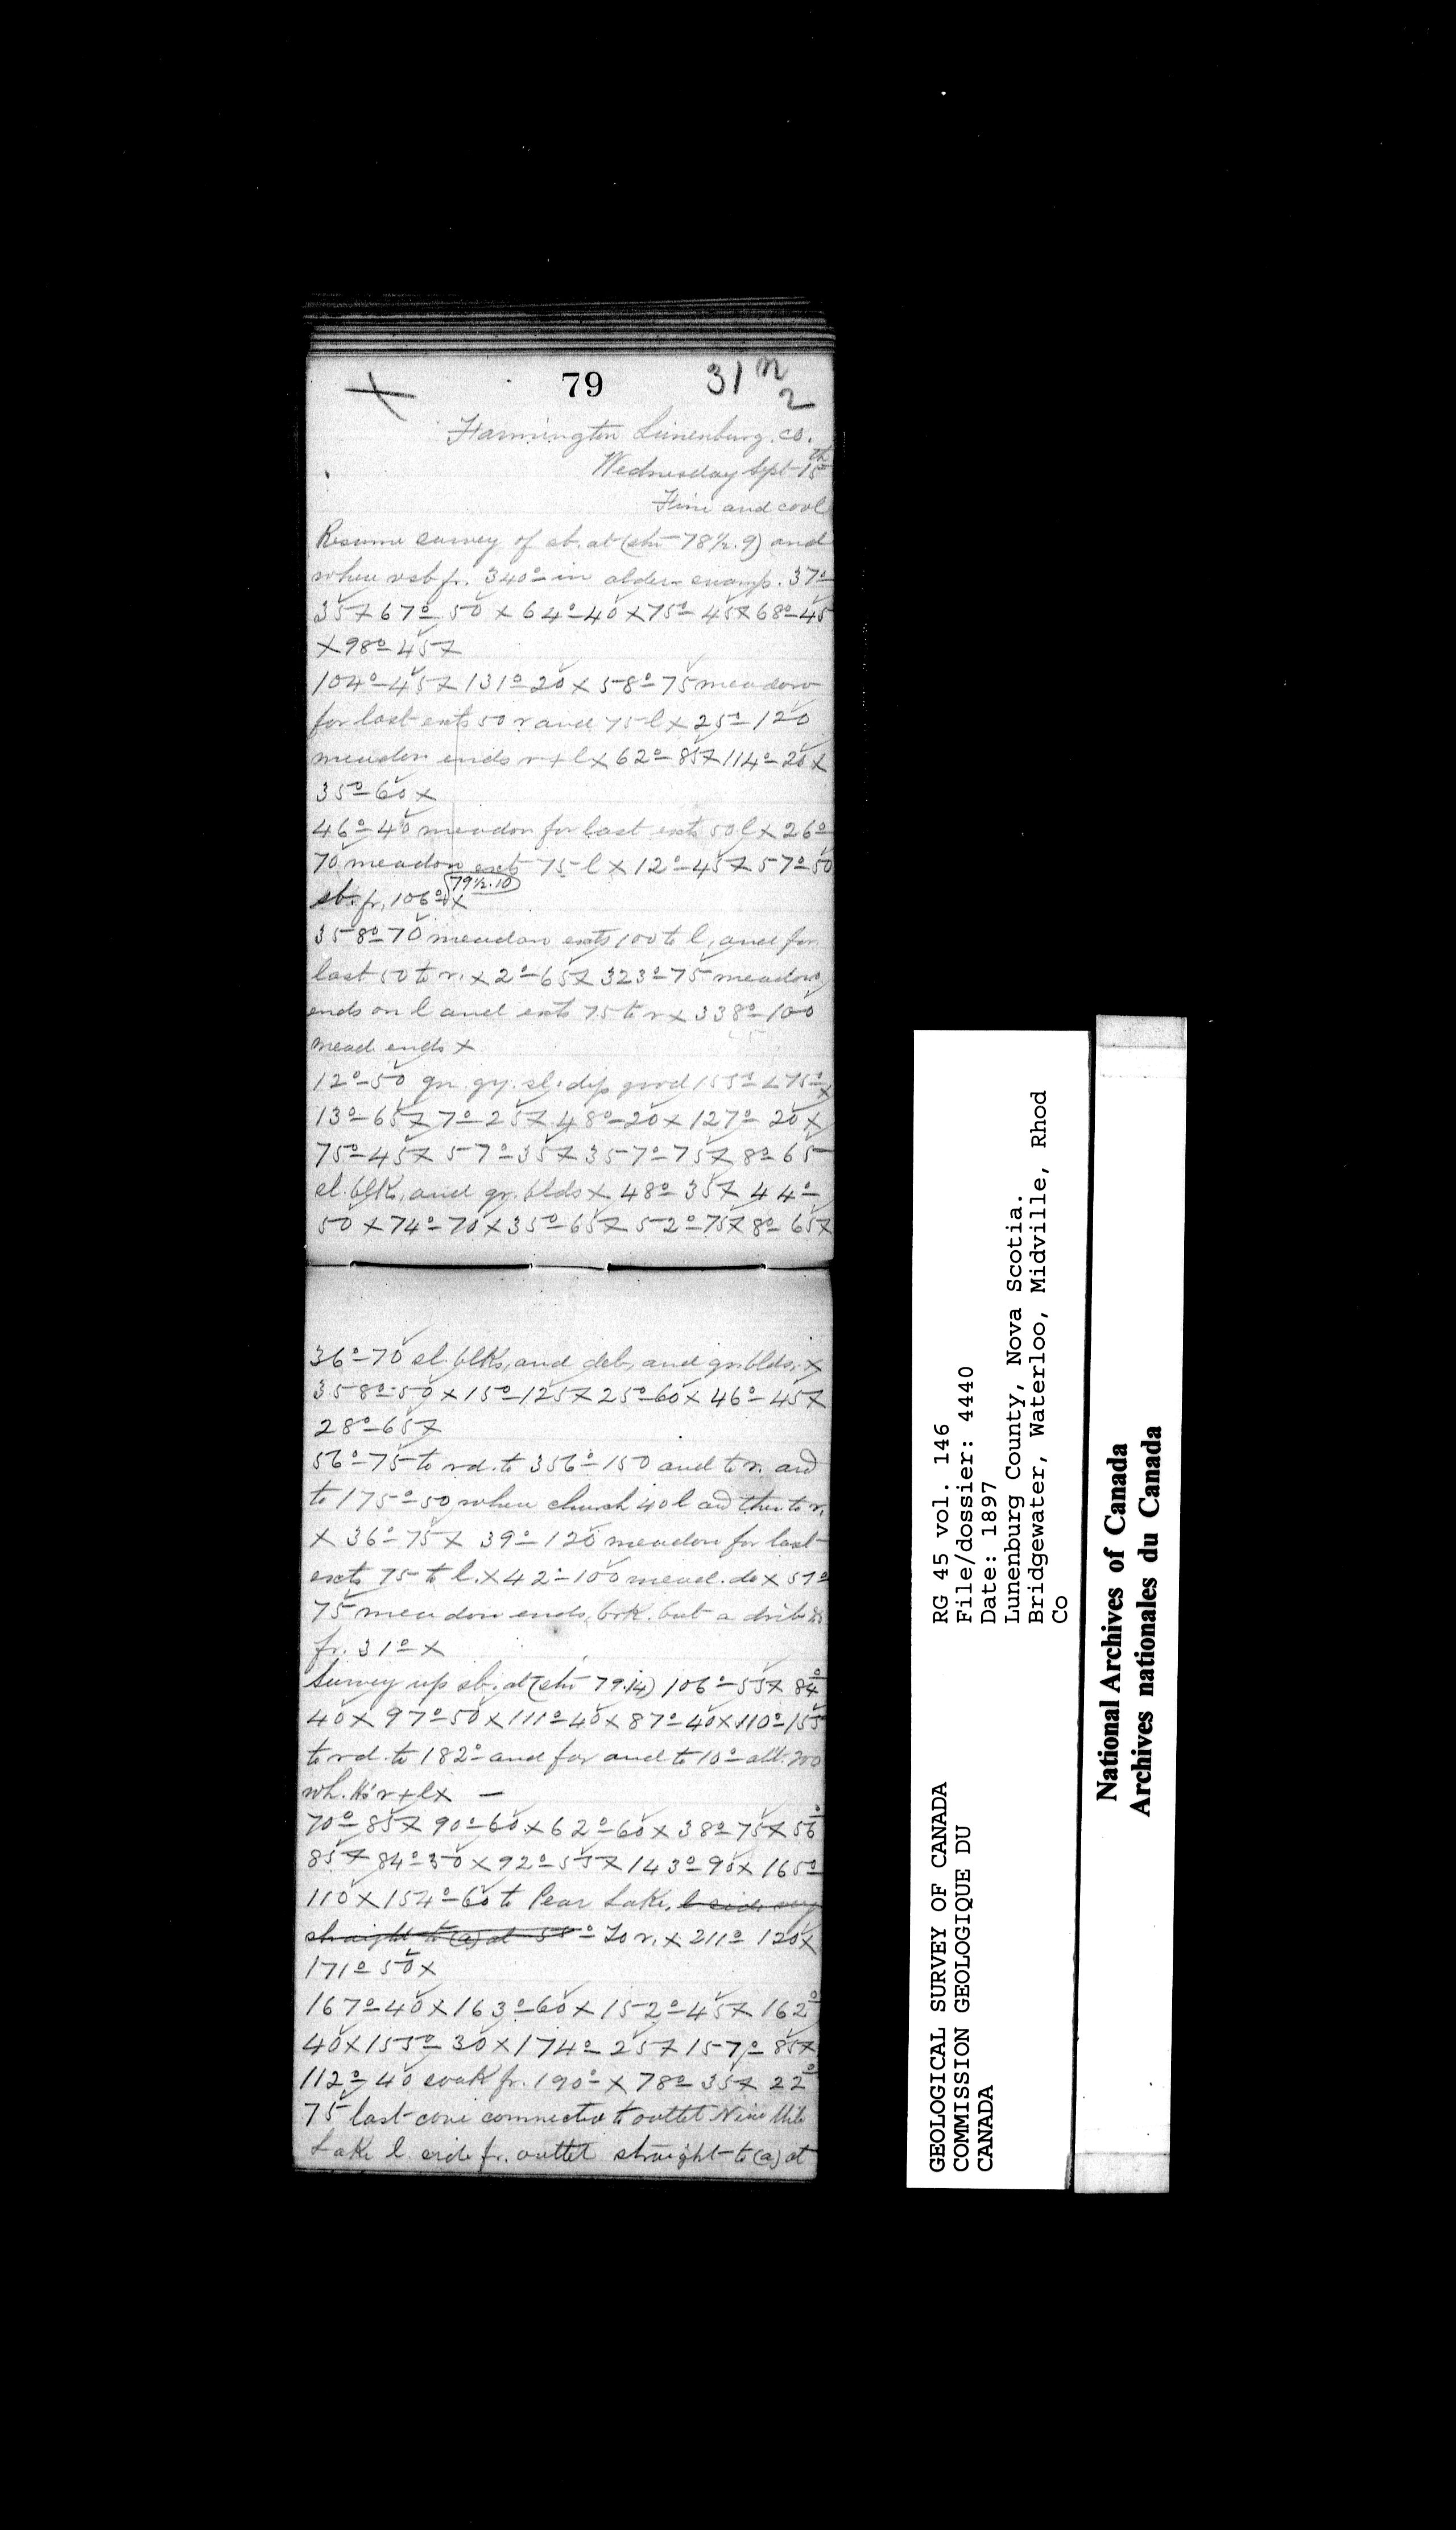 79
31 n
2
Farmington Lunenburg. co.
Wednesday Sept 15th
Fine and cool
Resume survey of sb. at (stn 78½.9) and
where vsb fr. 340° in alder swamp. 37°
35 x 67° 50 x 64° 40 x 75° 45 x 68° 45
x 98° 45 x
104° 45 x 131° 20 x 58° 75 meadow
for last exts 50 r and 75 l x 25° 120
meadow ends r + l x 62° 85 x 114° 20 x
35° 60 x
46° 40 meadow for last exts 50 l x 26°
70 meadow ext 75 l x 12° 45 x 57° 50
sb. fr. 106° x (79½.10)
358° 70 meadow exts 100 to l, and for
last 50 to r. x 2° 65 x 323° 75 meadow
ends on l and exts 75 to r x 338° 100
mead. ends x
12° 50 gn. gy. sl. dip good 155° <75° x
13° 65 x 7° 25 x 48° 20 x 127° 20 x
75° 45 x 57° 35 x 357° 75 x 8° 65
sl. blks, and gr. blds x 48° 35 x 44°
50 x 74° 70 x 35° 65 x 52° 75 x 8° 65 x
36° 70 sl. blks, and deb, and gr. blds. x
358° 50 x 15° 125 x 25° 60 x 46° 45 x
28° 65 x
56° 75 to rd. to 356° 150 and to r. and
to 175° 50 where church 40 l and then to r.
x 36° 75 x 39° 120 meadow for last
exts 75 to l. x 42° 100 mead. do x 57°
75 meadow ends, brk. but a
fr. 31° x
Survey up sb. at (stn 79.14) 106° 55 x 84°
40 x 97° 50 x 111° 40 x 87° 40 x 110° 155
to rd. to 182° and for and to 10° abt. 200
wh. Hs r + l x —
70° 85 x 90° 60 x 62° 60 x 38° 75 x 56°
85 x 84° 30 x 92° 55 x 143° 90 x 165°
110 x 154° 60 to Pear Lake, l side
straight to (a) at 58° To r. x 211° 120 x
171° 50 x
167° 40 x 163° 60 x 152° 45 x 162°
40 x 155° 30 x 174° 25 x 157° 85 x
112° 40 fr. 190° x 78° 35 x 22°
75 last cove connected to outlet Nine Mile
Lake l side fr. outlet straight to (a) at
RG 45 vol. 146
File/dossier: 4440
Date: 1897
Lunenburg County, Nova Scotia.
Bridgewater, Waterloo, Midville, Rhod
Co
GEOLOGICAL SURVEY OF CANADA
COMMISSION GEOLOGIQUE DU
CANADA
National Archives of Canada
Archives nationales du Canada